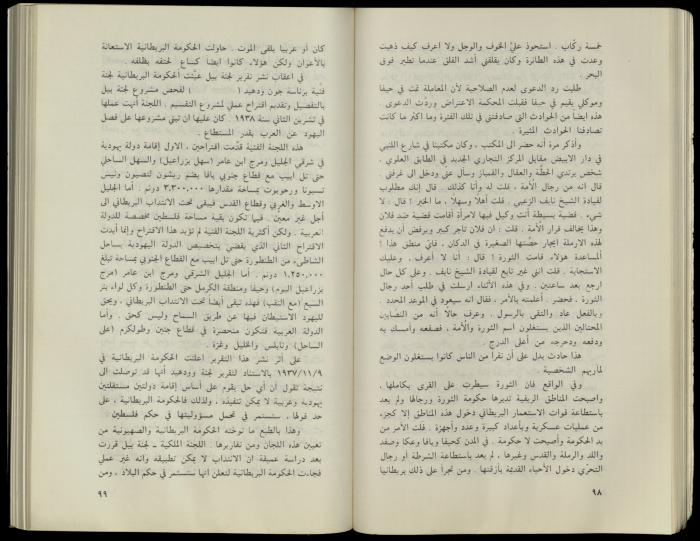 خمسة ركّاب . استحوذ عليّ الخوف والوجل ولا اعرف كيف ذهبت
وعدت في هذه الطائرة وكان يقلقني أشد القلق عندما نطير فوق
البحر .
طلبت رد الدعوى لعدم الصلاحية لأن المعاملة تمت في حيفا
وموكلي يقيم في حيفا فقبلت المحكمة الاعتراض وردّت الدعوى .
هذه ايضا من الحوادث التي صادفتني في تلك الفترة وما اكثر ما كانت
تصادفنا الحوادث المثيرة .
وأذكر مرة أنه حضر الى المكتب ، وكان مكتبنا في شارع اللنبي
في دار الابيض مقابل المركز التجاري الجديد في الطابق العلوي ،
شخص يرتدي الحطّة والعقال والقمباز وسأل عني ودخل الى غرفتي .
قال انه من رجال الأمة ، قلت له وأنا كذلك . قال إنك مطلوب
لقيادة الشيخ نايف الزعبي . قلت أهلاً وسهلاً ، ما الخبر ! قال : لا
شيء . قضية بسيطة أنت وكيل فيها لامرأة أقامت قضية ضد فلان
وهذا يخالف قرار الأمة . قلت : ان فلان تاجر كبير ويرفض أن يدفع
لهذه الارملة إيجار حصّتها الصغيرة في الدكان ، فأيّ منطق هذا !
ألمساعدة هؤلاء قامت الثورة ! قال : أنا لا أعرف ، وعليك
الاستجابة . قلت انني غير تابع لقيادة الشيخ نايف . وعلى كل حال
ارجع بعد ساعتين . وفي هذه الأثناء ارسلت في طلب أحد رجال
الثورة ، فحضر . أعلمته بالأمر ، فقال انه سيعود في الموعد المحدد .
وبالفعل عاد والتقى بالرسول ، وعرف حالا أنه من النصّابين
المحتالين الذين يستغلون اسم الثورة والأمة ، فصفعه وأمسك به
ودفعه ودحرجه من أعلى الدرج .
هذا حادث يدل على أن نفراً من الناس كانوا يستغلون الوضع
لمآربهم الشخصية .
وفي الواقع فان الثورة سيطرت على القرى بكاملها ،
واصبحت المناطق الريفية تديرها حكومة الثورة ورجالها ولم يعد
باستطاعة قوات الاستعمار البريطاني دخول هذه المناطق إلا كجزء
من عمليات عسكرية وبأعداد كبيرة وعدد وأجهزة . فلت الأمر من
يد الحكومة وأصبحت لا حكومة . في المدن كحيفا ويافا وعكا وصفد
واللد والرملة والقدس وغيرها ، لم يعد باستطاعة الشرطة أو رجال
التحرّي دخول الأحياء القديمة بأزقتها . ومن تجرأ على ذلك بريطانيا
٩٨
كان أو عربيا يلقى الموت . حاولت الحكومة البريطانية الاستعانة
بالأعوان ولكن هؤلاء كانوا ايضا كساعٍ لحتفه بظلفه .
في اعقاب نشر تقرير لجنة بيل عيّنت الحكومة البريطانية لجنة
فنية برئاسة جون ودهيد ( ) لفحص مشروع لجنة بيل
بالتفصيل وتقديم اقتراح عملي لمشروع التقسيم . اللجنة أنهت عملها
في تشرين الثاني سنة ١٩٣٨ . كان عليها ان تبني مشروعها على فصل
اليهود عن العرب بقدر المستطاع .
هذه اللجنة الفنية قدّمت اقتراحين . الاول إقامة دولة يهودية
في شرقي الجليل ومرج ابن عامر (سهل يزراعيل) والسهل الساحلي
حتى تل ابيب مع قطاع جنوبي يافا يضم ريشون لتصيون ونيس
تسيونا ورحوبوت بمساحة مقدارها ٣,٣٠٠,٠٠٠ دونم . أما الجليل
الاوسط والغربي وقطاع القدس فيبقى تحت الانتداب البريطاني الى
أجل غير معين . فيما تكون بقية مساحة فلسطين مخصصة للدولة
العربية . ولكن أكثرية اللجنة الفنية لم تؤيد هذا الاقتراح وإنما أيدت
الاقتراح الثاني الذي يقضي بتخصيص الدولة اليهودية بساحل
الشاطىء من الطنطورة حتى تل ابيب مع القطاع الجنوبي بمساحة تبلغ
١,٢٥٠,٠٠٠ دونم . أما الجليل الشرقي ومرج ابن عامر (مرج
يزراعيل اليوم) وحيفا ومنطقة الكرمل حتى الطنطورة وكل لواء بئر
السبع (مع النقب) فهذه تبقى أيضاً تحت الانتداب البريطاني ، ويحق
لليهود الاستيطان فيها عن طريق السماح وليس كحق . وأما
الدولة العربية فتكون منحصرة في قطاع جنين وطولكرم (على
الساحل) ونابلس والخليل وغزة .
على أثر نشر هذا التقرير اعلنت الحكومة البريطانية في
١٩٣٧/١١/٩ بالاستناد لتقرير لجنة وودهيد أنها قد توصلت الى
نتيجة تقول أن أي حل يقوم على أساس إقامة دولتين مستقلتين
يهودية وعربية لا يمكن تنفيذه ، ولذلك فالحكومة البريطانية ، على
حد قولها ، ستستمر في تحمل مسؤوليتها في حكم فلسطين .
وهذا بالطبع ما توخته الحكومة البريطانية والصهيونية من
تعيين هذه اللجان ومن تقاريرها . اللجنة الملكية – لجنة بيل قررت
بعد دراسة عميقة ان الانتداب لا يمكن تطبيقه وانه غير عملي
فجاءت الحكومة البريطانية لتعلن انها ستستمر في حكم البلاد ، ومن
٩٩